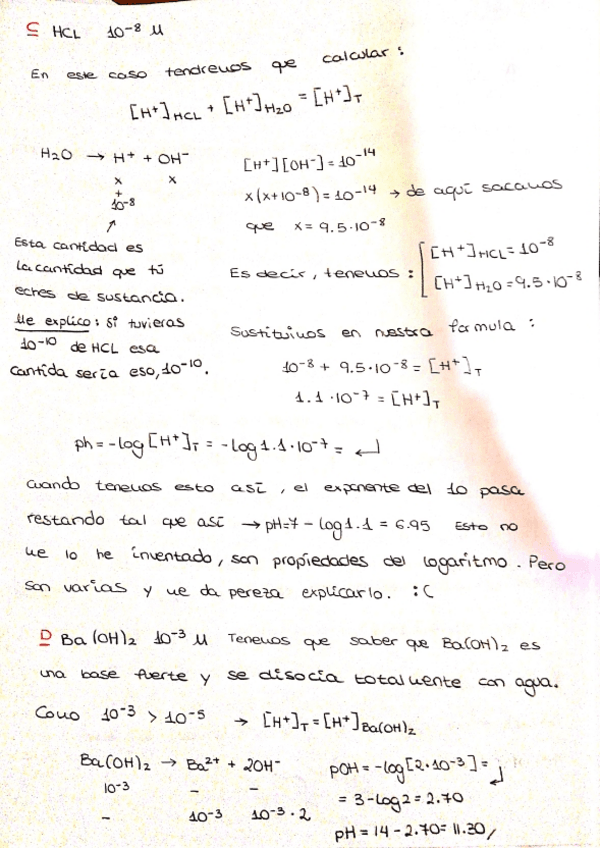 C HCL 10⁻⁸ M
En este caso tendremos que calcular:
[H⁺]HCL + [H⁺]H₂O = [H⁺]T
H₂O → H⁺ + OH⁻
x x
+
10⁻⁸
Esta cantidad es
la cantidad que tú
eches de sustancia.
Me explico: Si tuvieras
10⁻¹⁰ de HCL esa
cantida sería eso, 10⁻¹⁰.
[H⁺][OH⁻] = 10⁻¹⁴
x(x+10⁻⁸) = 10⁻¹⁴ → de aquí sacamos
que x = 9.5·10⁻⁸
Es decir, tenemos: [H⁺]HCL = 10⁻⁸
[H⁺]H₂O = 9.5·10⁻⁸
Sustituimos en nuestra formula:
10⁻⁸ + 9.5·10⁻⁸ = [H⁺]T
1.1·10⁻⁷ = [H⁺]T
ph = -log[H⁺]T = -log1.1·10⁻⁷ = ↵
Cuando tenemos esto así, el exponente del 10 pasa
restando tal que así → pH=7 - log1.1 = 6.95 Esto no
me lo he inventado, son propiedades del logaritmo. Pero
son varias y me da pereza explicarlo. :C
D Ba(OH)₂ 10⁻³ M Tenemos que saber que Ba(OH)₂ es
una base fuerte y se disocia totalmente con agua.
Como 10⁻³ > 10⁻⁵ → [H⁺]T = [H⁺]Ba(OH)₂
Ba(OH)₂ → Ba²⁺ + 2OH⁻
10⁻³ - -
- 10⁻³ 10⁻³·2
pOH = -log[2·10⁻³] = ↵
= 3 - log2 = 2.70
pH = 14 - 2.70 = 11.30/